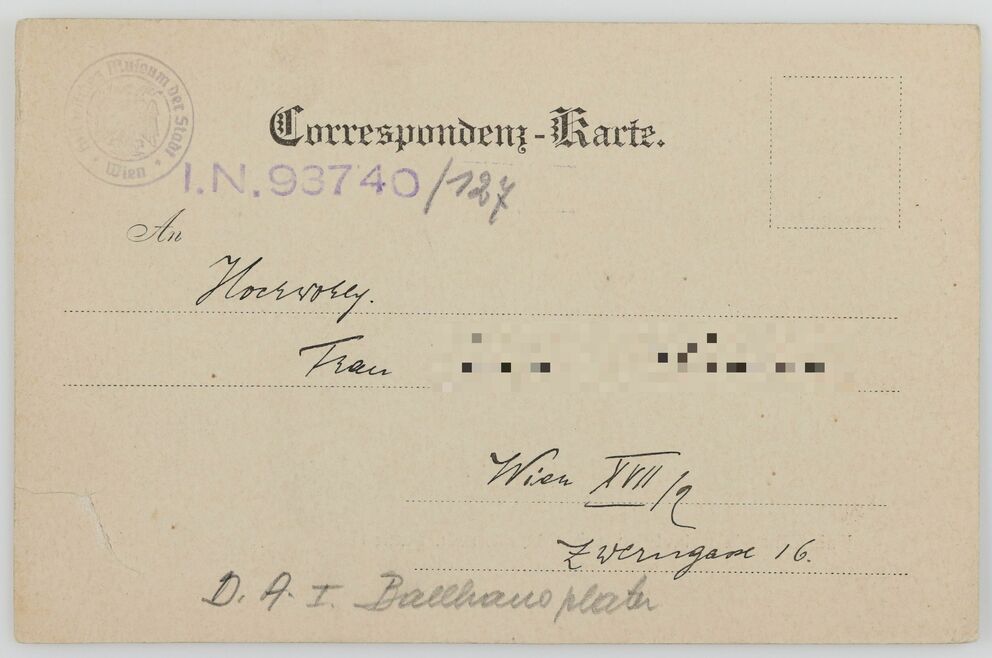 Museum der Stadt
Wien
Correspondenz-Karte.
I.N. 93740/127
An
Hochwohlg.
Frau
Wien XVII/2
Zwerngasse 16.
D. A. I. Ballhausplatz